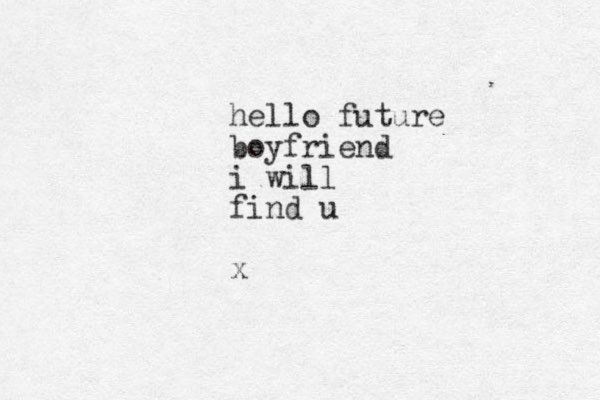 hello future
boyfriend
i will
find u
x